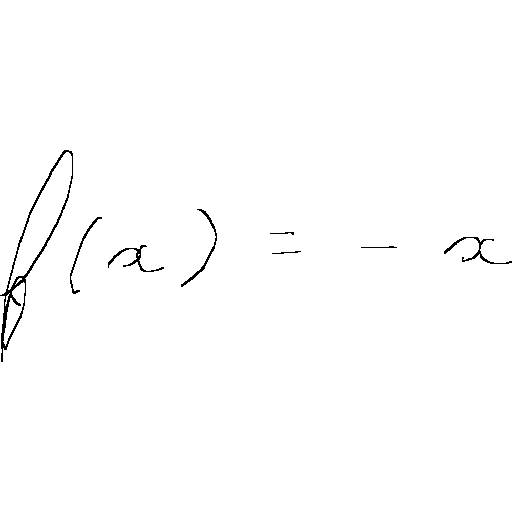 f(x) = - x